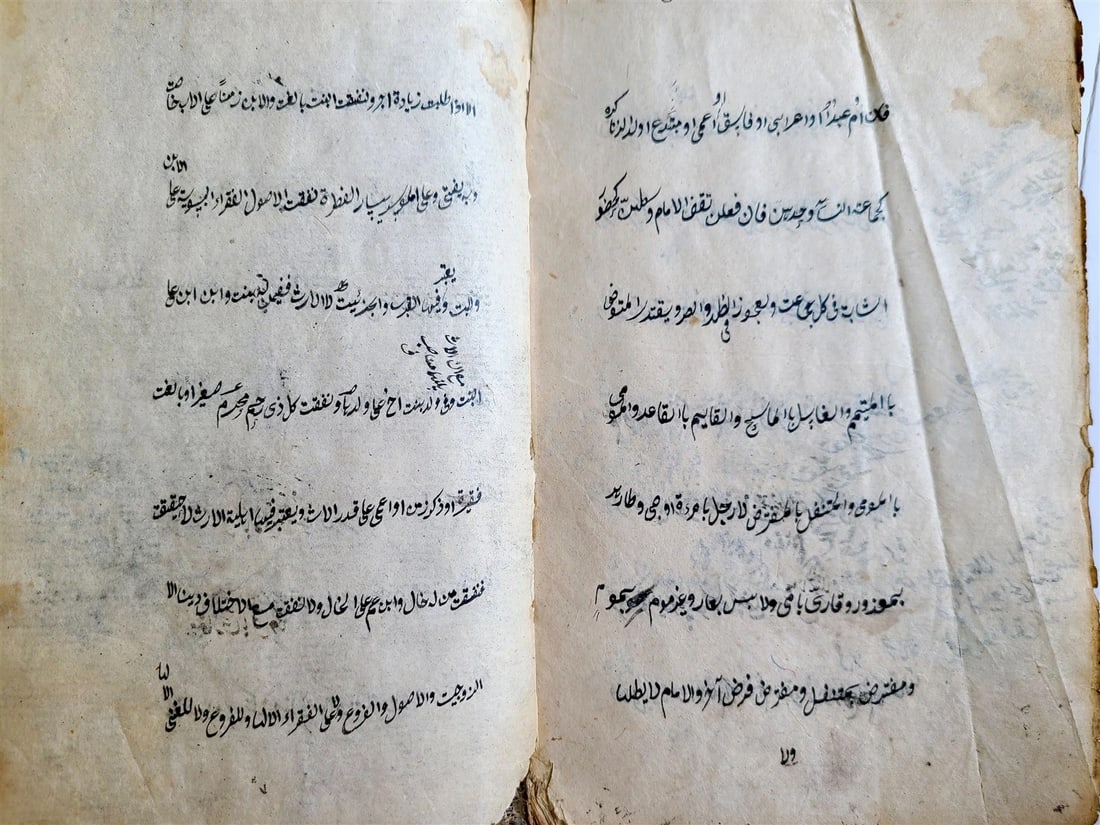 فان ام عبد او اعرابي او فاسق او اعمى او مبتدع او ولد الزنا كره
كجماعة النساء وحدهن فان فعلن تقف الامام وسطهن كحضور
الشابة في كل جماعت و العجوز الظهر والعصر ويقتدى المتوضى
باالمتيمم والغاسل باالماسح والقايم باالقاعد والمومى
باالمومى والمتنفل باالمفترض لا رجل بامرءة او صبي وطاهر
بمعذور وقارى بامى ولابس بعار وغير موم بموم
ومفترض بمتنفل ومفترض فرض آخر والامام لا يطلها
ولا
الا اذا طلبت زيادة اجر ونفقت البنت بالغت والابن زمنا على الاب خاصة
وبه يفتى وعلى الموسر يسار الفطرة نفقت الاصول الفقراء بالسوية على الابن
والبنت ويعتبر فيها القرب والجزئيت لا الارث ففيمن له بنت وابن ابن على
البنت وفي ولد بنت واخ على ولدها ونفقت كل ذى رحم محرم صغير او بالغت
فقيرة او ذكر زمن او اعمى على قدر الارث ويعتبر فيها اهلية الارث لا حقيقة
فنفقت من له خال وابن عم على الخال ولا نفقت مع الاختلاف دينا الا
الزوجت والاصول والفروع ولا على الفقراء الا لها وللفروع ولا للغنى الا
لها